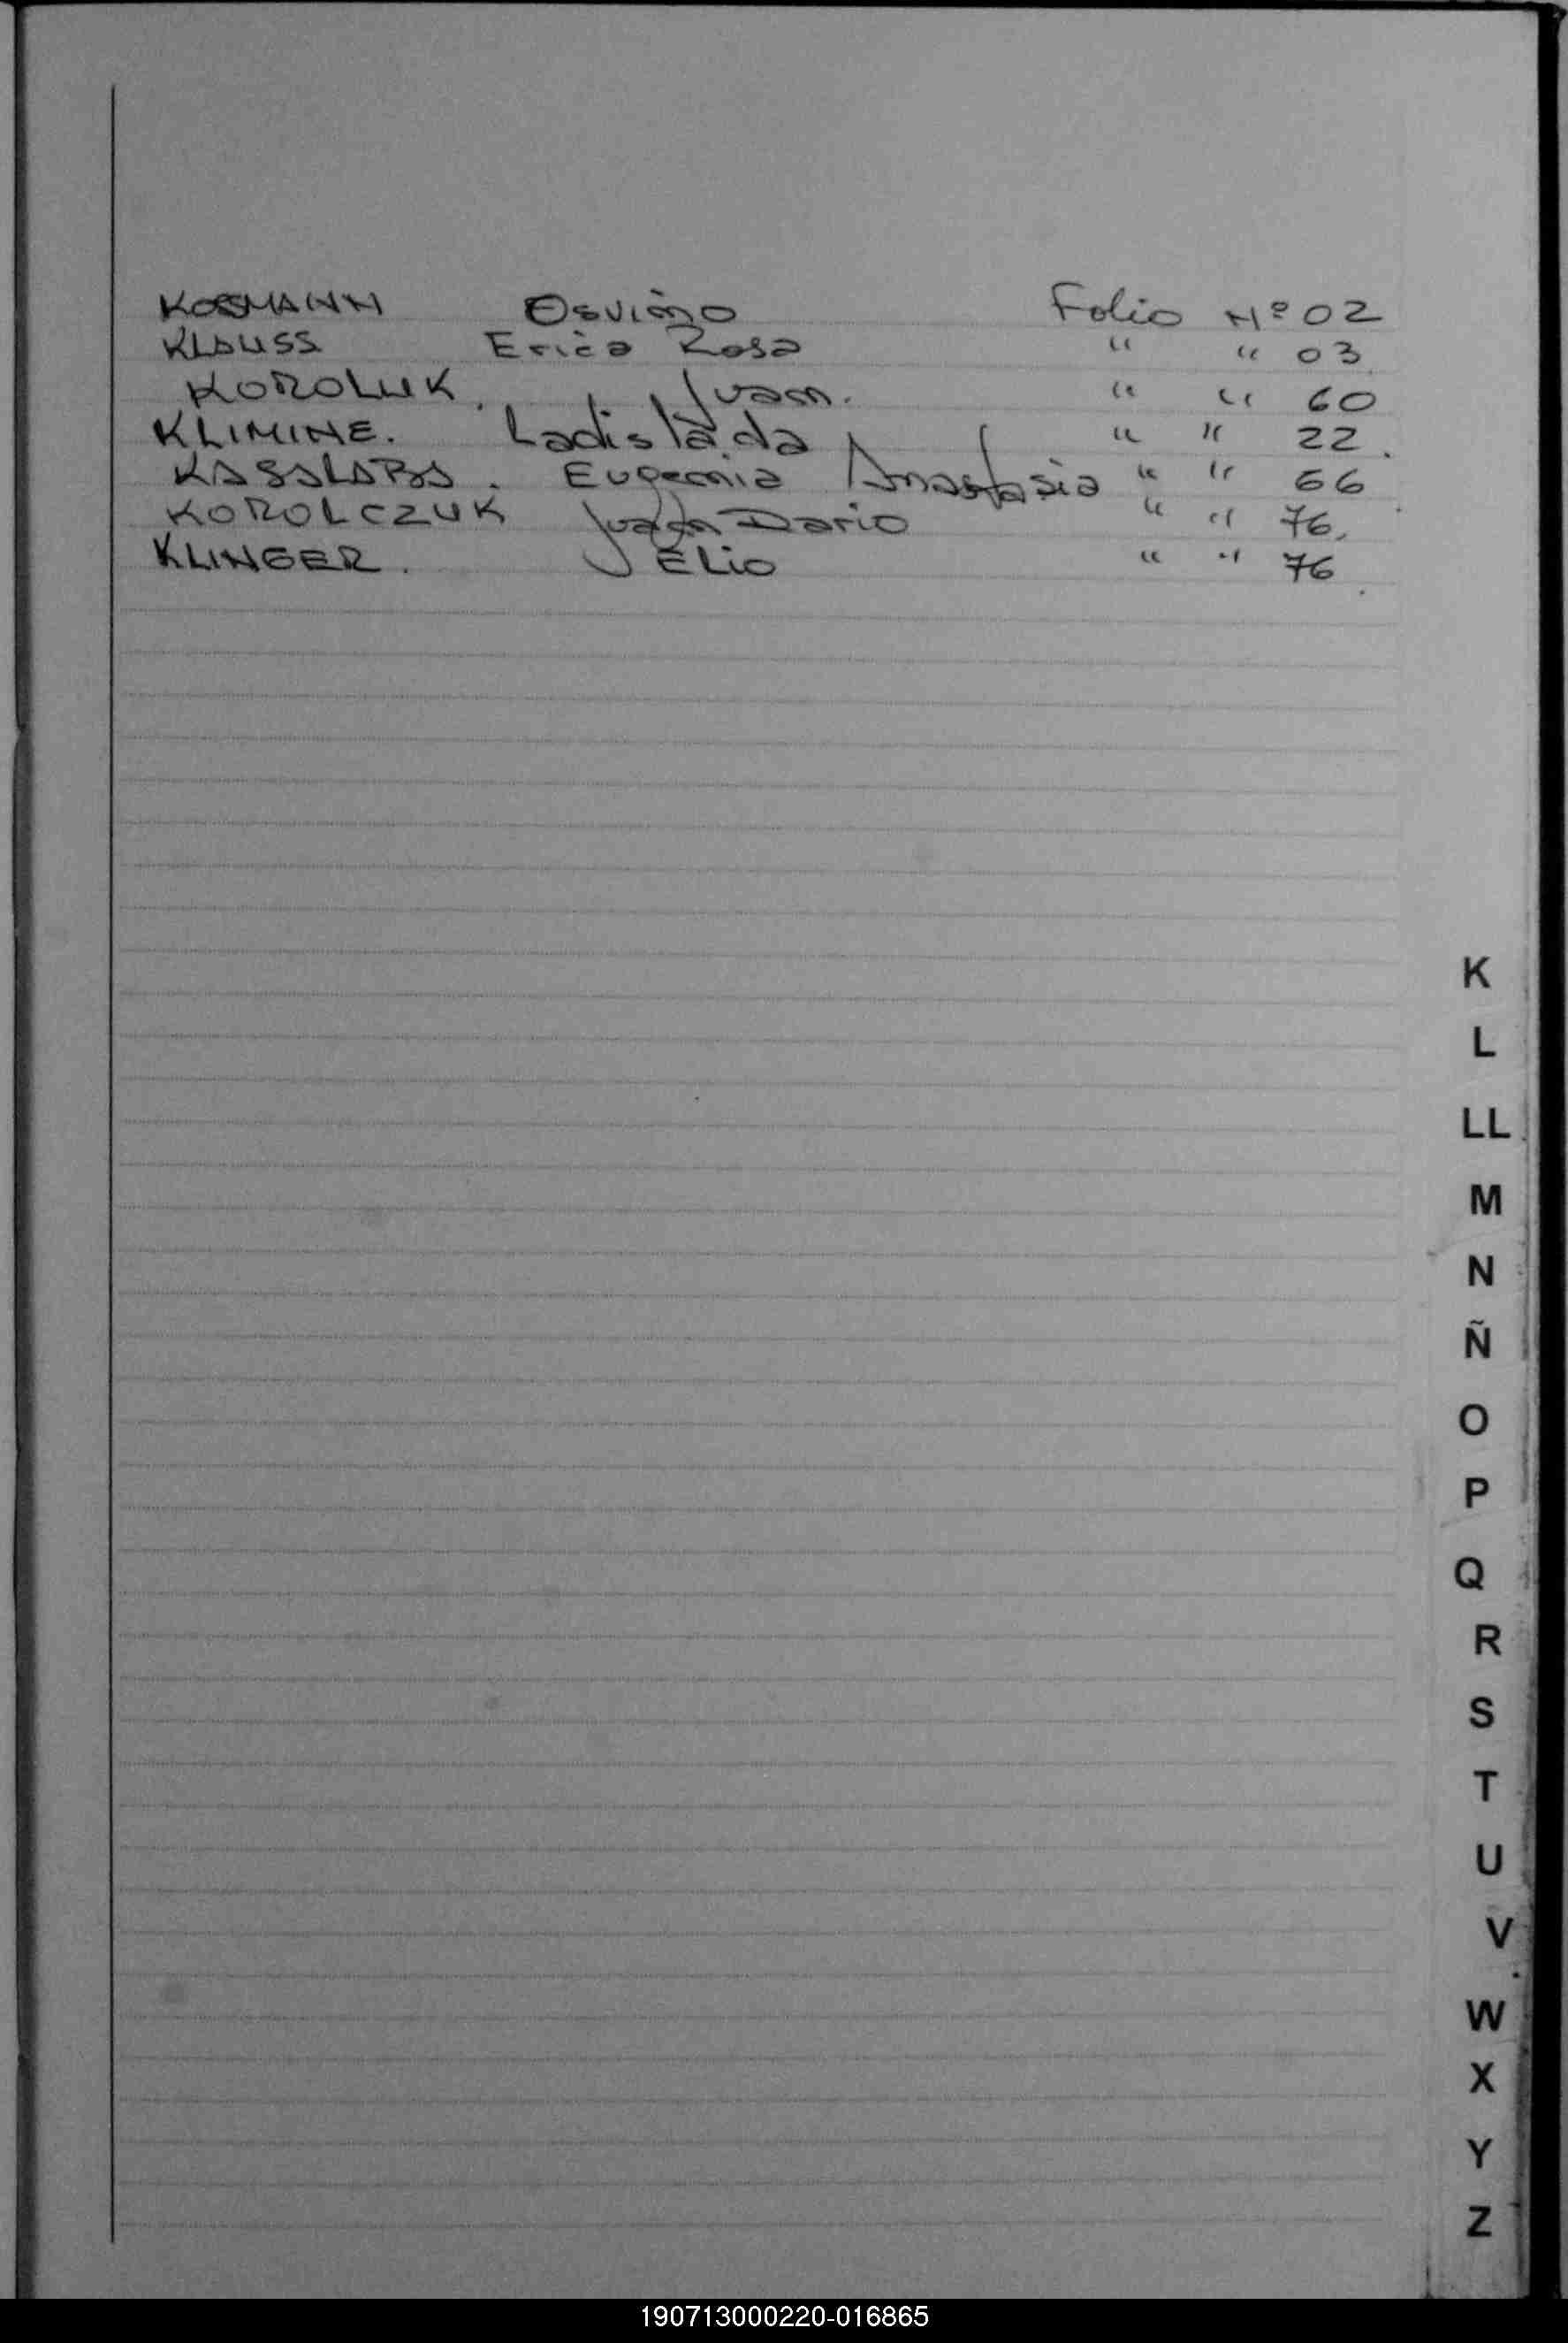 KOSMANN Osvino Folio Nº 02
KLAUSS Erica Rosa " " 03
KOROLUK. Ivan. " " 60
KLIMINE. Ladislada " " 22.
KASALABA. Eugenia Anastasia " " 66
KOROLCZUK Juan Dario " " 76.
KLINGER. Elio " " 76.
K
L
LL
M
N
Ñ
O
P
Q
R
S
T
U
V
W
X
Y
Z
190713000220-016865